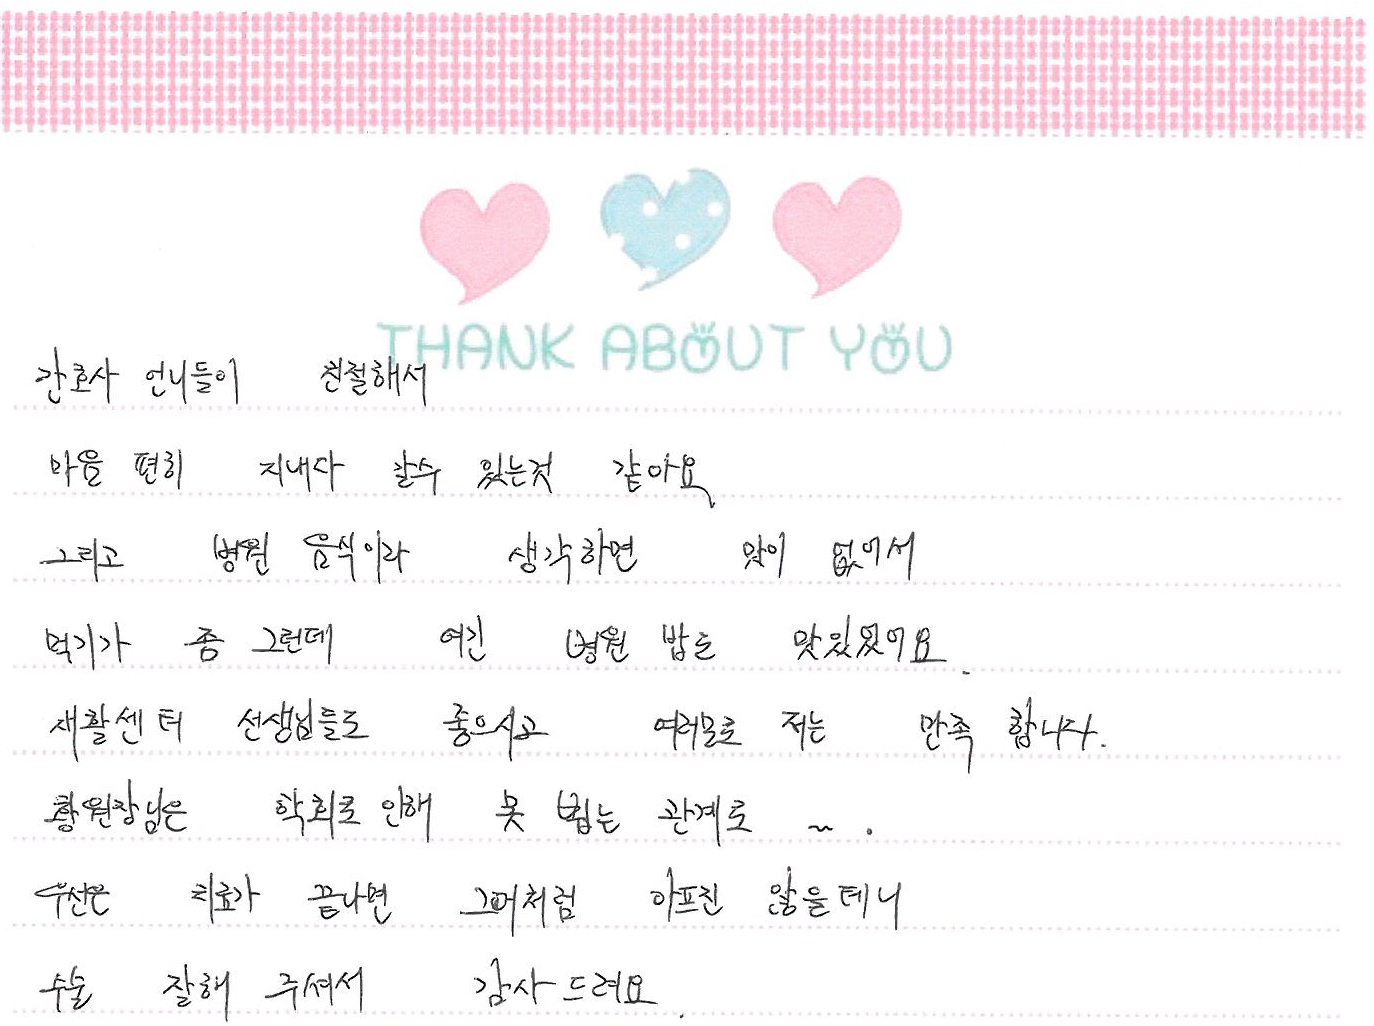 THANK ABOUT YOU
간호사 언니들이 친절해서
마음 편히 지내다 갈수 있는것 같아요.
그리고 병원 음식이라 생각하면 맛이 없어서
먹기가 좀 그런데 여긴 병원 밥도 맛있었어요.
재활센터 선생님들도 좋으시고 여러모로 저는 만족 합니다.
황원장님은 학회로 인해 못 뵙는 관계로 ~.
우선은 치료가 끝나면 그때처럼 아프진 않을테니
수술 잘해 주셔서 감사 드려요.